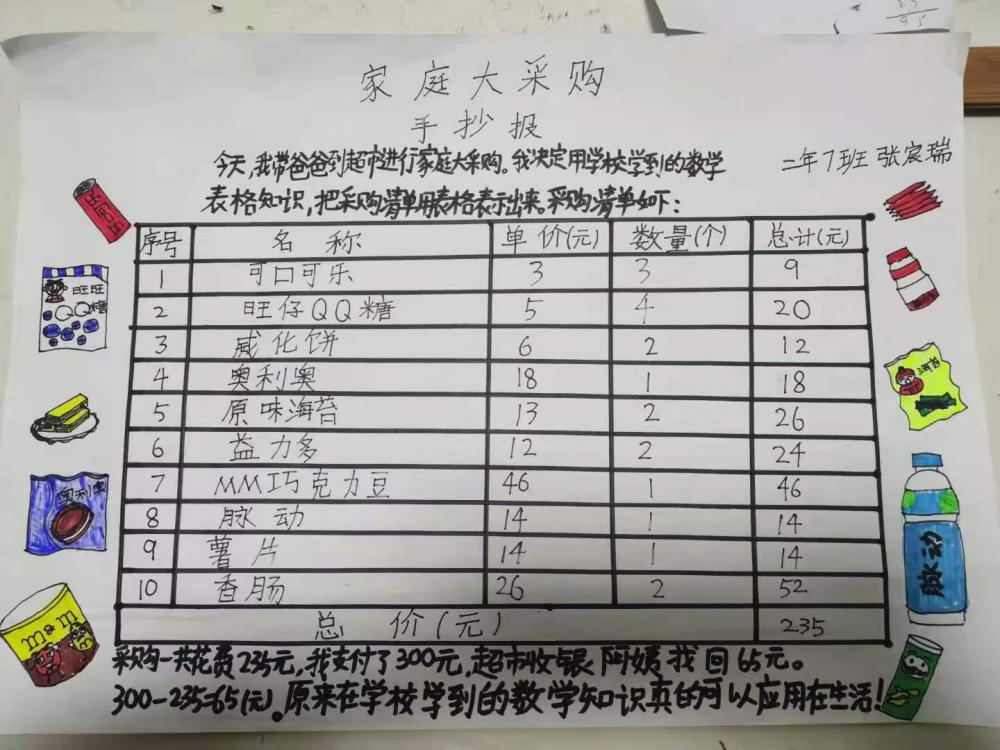 23
95
家庭大采购
手抄报
二年7班 张宸瑞
今天,我带爸爸到超市进行家庭大采购。我决定用学校学到的数学
表格知识,把采购清单用表格表示出来。采购清单如下:
序号 名称 单价(元) 数量(个) 总计(元)
1 可口可乐 3 3 9
2 旺仔QQ糖 5 4 20
3 威化饼 6 2 12
4 奥利奥 18 1 18
5 原味海苔 13 2 26
6 益力多 12 2 24
7 MM巧克力豆 46 1 46
8 脉动 14 1 14
9 薯片 14 1 14
10 香肠 26 2 52
总价(元) 235
采购一共花费235元,我支付了300元,超市收银阿姨找回65元。
300-235=65(元)。原来在学校学到的数学知识真的可以应用在生活!
旺旺
QQ糖
奥利奥
m&m
海苔
脉动